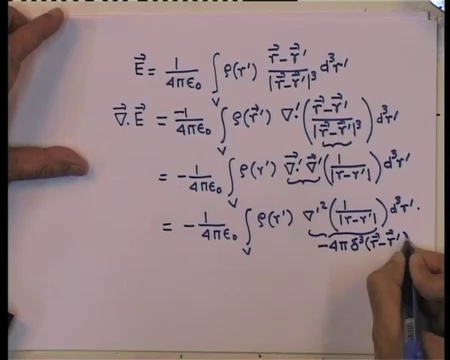 E⃗ = 1/4πε₀ ∫_V ρ(r') (r⃗-r⃗')/|r⃗-r⃗'|³ d³r'
∇⃗.E⃗ = -1/4πε₀ ∫_V ρ(r⃗') ∇'.((r⃗-r⃗')/|r⃗-r⃗'|³) d³r'
= -1/4πε₀ ∫_V ρ(r') ∇⃗'.∇⃗'(1/|r-r'|) d³r'
= -1/4πε₀ ∫_V ρ(r') ∇'²(1/|r-r'|) d³r'.
-4πδ³(r⃗-r⃗')